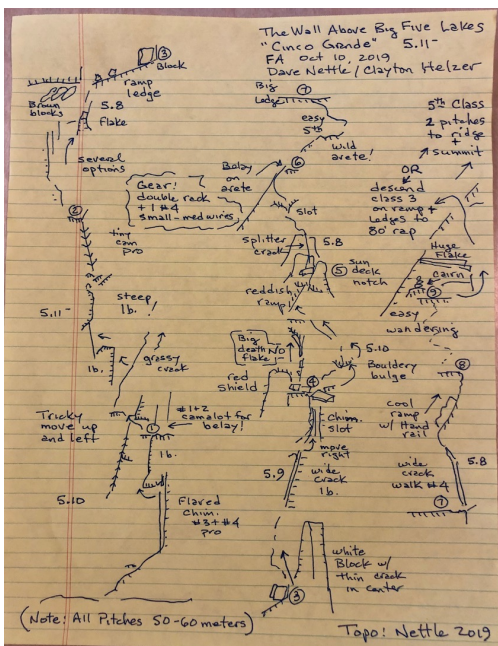 The Wall Above Big Five Lakes
"Cinco Grande" 5.11-
FA Oct 10, 2019
Dave Nettle / Clayton Helzer
③
Block
ramp
ledge
Brown
blocks
5.8
flake
several
options
②
tiny
cam
pro
5.11-
steep
lb.!
lb.
grassy
crack
Tricky
move up
and left
①
#1+2
camalot for
belay!
lb.
5.10
Flared
Chim.
#3+#4
pro
Gear!
double rack
+ 1 #4
small-med wires
Big
Ledge
⑦
easy
5th
wild
arete!
⑥
Belay
on
arete
slot
splitter
crack
5.8
⑤ sun
deck
notch
reddish
ramp
Big
death NO
flake
5.10
Bouldery
bulge
red
shield
④
Chim.
slot
move
right
5.9
wide
crack
lb.
white
Block w/
thin crack
in center
③
5th Class
2 pitches
to ridge
+
summit
OR
descend
class 3
on ramp +
ledges to
80' rap
Huge
Flake
cairn
⑨
easy
wandering
⑧
cool
ramp
w/ Hand
rail
wide
crack
walk #4
5.8
⑦
(Note: All Pitches 50-60 meters)
Topo: Nettle 2019